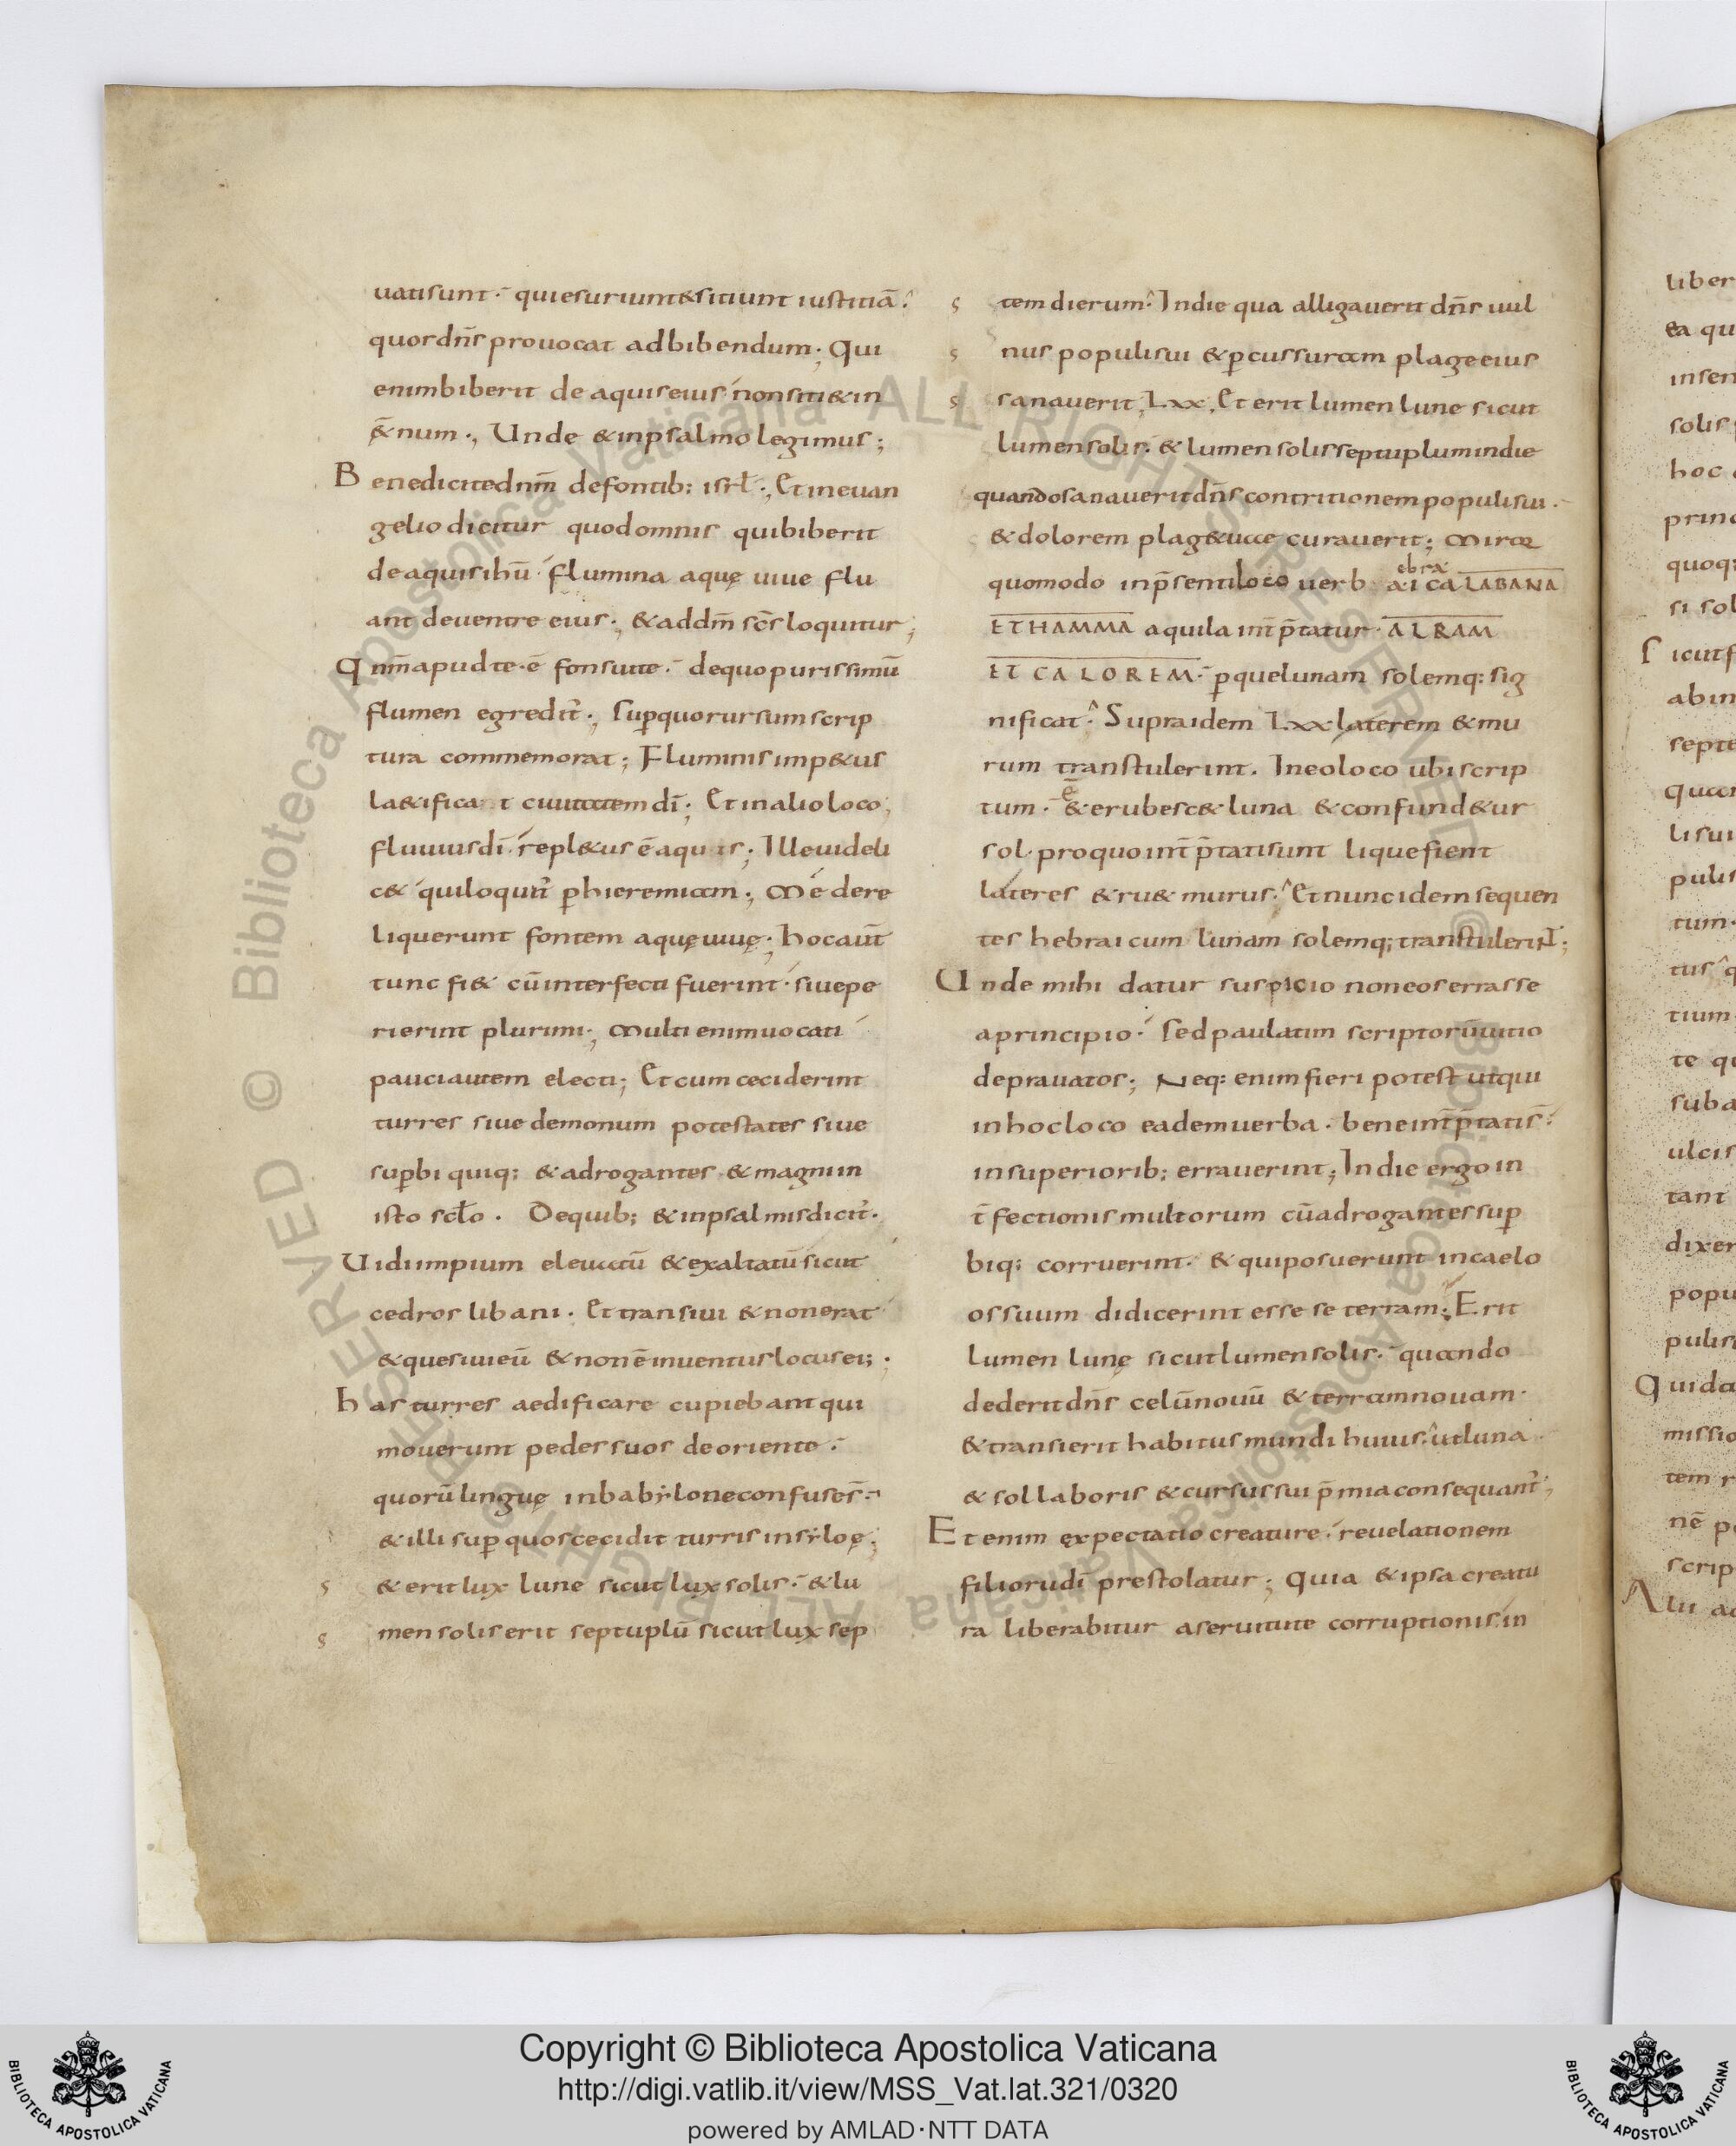 uatisunt · quiesuriunt&sitiunt iustitiā ·
quos dn̄s prouocat adbibendum ; qui
enimbiberit de aquis eius · non siti& in
&̄num ·, Unde &inpsalmo legimus ;
Benedicite dnm̄ defontib: isrl̄ ·, Et in euan
gelio dicitur quodomnis quibiberit
de aquis ihū · flumina aquę uiue flu
ant deuentre eius · ; &addm̄ sc̄s loquitur ;
Qnm̄ apud te · ē fons uite · dequo purissimū
flumen egredit̄ ·, sup̱ quo rursum scrip
tura commemorat ; Fluminis imp&us
la&ifica t ciuitatem dī ; Et in alio loco ;
fluuius dī · repl&us ē aquis ; Ille uideli
c& · quiloquit̄ p̱ hieremiam ; Me dere
liquerunt fontem aquę uiuę ; hoc aut̄
tunc fi& cū interfecti fuerint · siue pe
rierint plurimi ; Multi enim uocati
pauci autem electi ; Et cum ceciderint
turres siue demonum potestates siue
sup̱bi quiq; & adrogantes & magni in
isto scl̄o · De quib; & in psalmis dicit̄ ·
Uidi impium eleuatū & exaltatū sicut
cedros libani · Et transiui & non erat
& quesiui eū & non ē inuentus locus ei; ·
has turres aedificare cupiebant qui
mouerunt pedes suos de oriente ·
quorū linguę in babylone confuse s̄ ·
& illi sup̱ quos cecidit turris in syloę ;
s & erit lux lune sicut lux solis · & lu
s men solis erit septuplū sicut lux sep
s tem dierum · In die qua alligauerit dn̄s uul
s nus populi sui & p̱cussuram plage eius
s sanauerit ; Lxx , Et erit lumen lune sicut
lumen solis · & lumen solis septuplum in die
quando sanauerit dn̄s contritionem populi sui ·
& dolorem plag& uae curauerit ; Miror
quomodo inp̄senti loco uerb ebra
a · ica LABANA
ET HAMMA aquila int̄p̄tatur · ALBAM
ET CALOREM · p̱ que lunam solemq: sig
nificat · Supra idem Lxx laterem & mu
rum transtulerint · In eo loco ubi scrip
tum · ē & erubesc& luna & confund&ur
sol · pro quo int̄p̄tati sunt liquefient
lateres & ru& murus · Et nunc idem sequen
tes hebraicum lunam solemq; transtulerint ;
Unde mihi datur suspicio non eos errasse
a principio · sed paulatim scriptorū uitio
deprauatos ; Neq: enim fieri potest ut qui
in hoc loco eadem uerba · bene int̄p̄tatis ·
in superiorib; errauerint ; In die ergo in
t̄fectionis multorum cū adrogantes sup̱
biq; corruerint · & qui posuerunt in caelo
os suum didicerint esse se terram ; Erit
lumen lunę sicut lumen solis · quando
dederit dn̄s celū nouū & terram nouam ·
& transierit habitus mundi huius · ut luna ·
& sol laboris & cursus sui p̄mia consequant̄ ;
Et enim ęxpectatio creature · reuelationem
filioru dī prestolatur ; Quia & ipsa creatu
ra liberabitur a seruitute corruptionis in
liber
ea qu
insen
solis
hoc
prin
quoq:
si sol
sicut
abin
septe
quan
li sui
pulis
tum
tus q
tium
te qu
suba
ulcis
tant
dixer
popu
pulis
Quid a
missio
tem r
nē p
scrip
Alii a
Copyright © Biblioteca Apostolica Vaticana
http://digi.vatlib.it/view/MSS_Vat.lat.321/0320
powered by AMLAD·NTT DATA
BIBLIOTECA APOSTOLICA VATICANA
BIBLIOTECA APOSTOLICA VATICANA